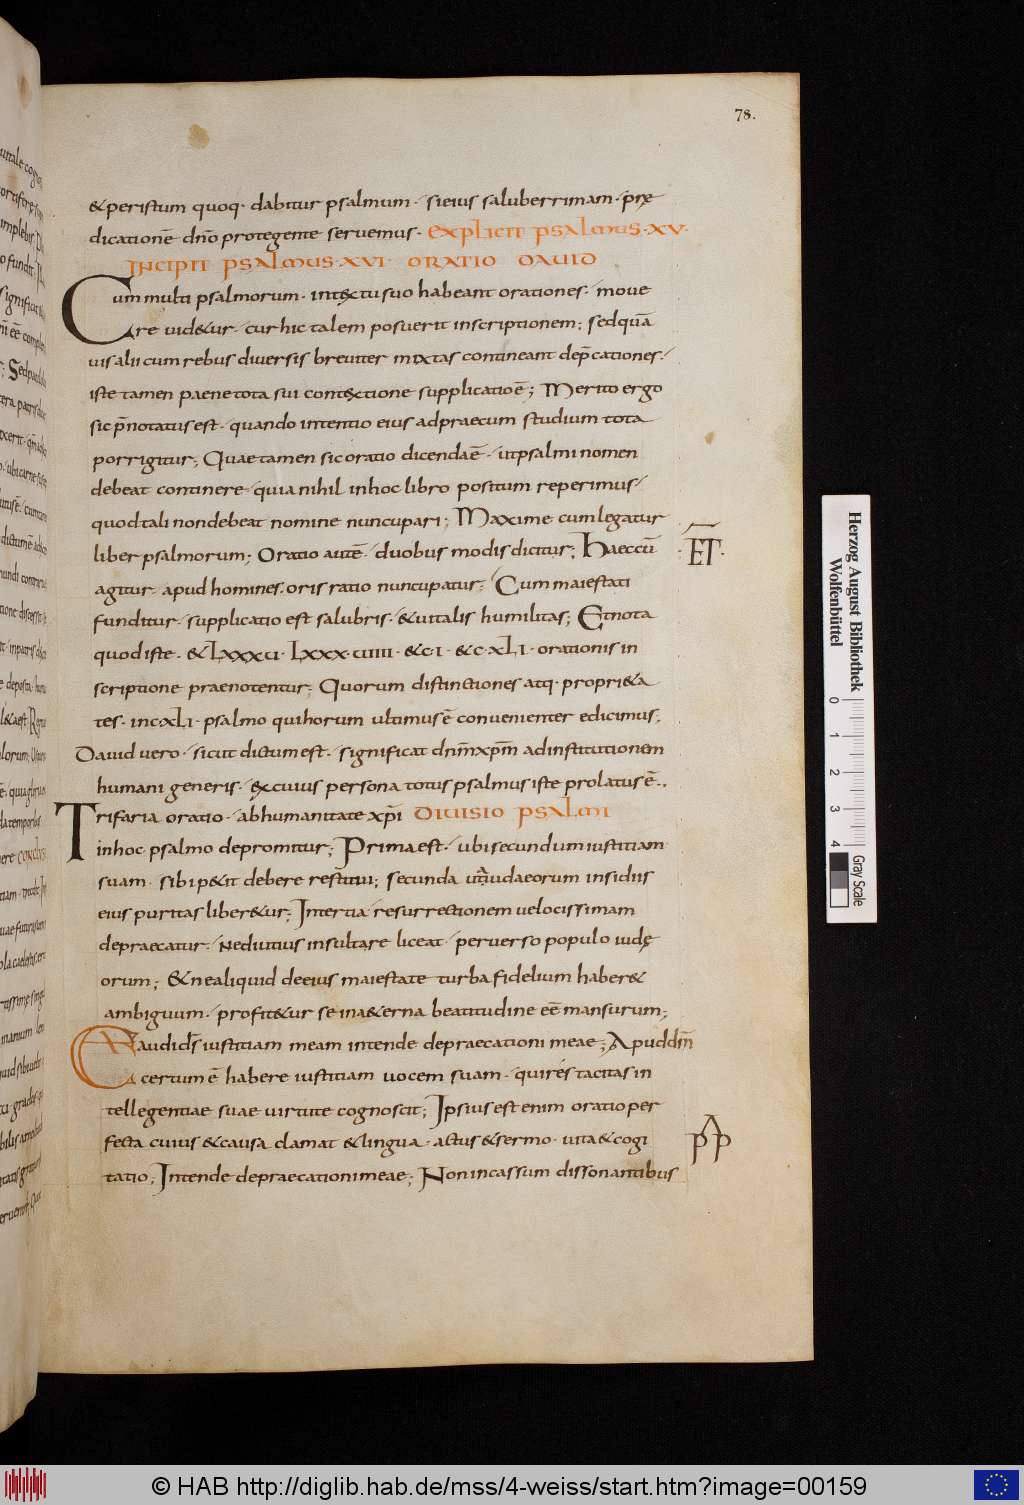 78.
&peristum quoq· dabitur psalmum· sieius saluberrimam· prę
dicationē dn̄o protegente seruemus· EXPLICIT PSALMUS·XV·
INCIPIT PSALMUS·XVI· ORATIO DAUID
Cum multi psalmorum· intextu suo habeant orationes· moue
re uid&ur· cur hic talem posuerit inscriptionem; sed quā
uis alii cum rebus diuersis breuiter mixtas contineant dep̄cationes·
iste tamen paene tota sui contextione supplicatio ē; Merito ergo
sic p̄notatus est· quando intentio eius adpraecum studium tota
porrigitur; Quae tamen sic oratio dicenda ē· ut psalmi nomen
debeat continere· quia nihil in hoc libro positum reperimus
quod tali non debeat nomine nuncupari; Maxime cum legatur
liber psalmorum; Oratio autē· duobus modis dicitur; Haec cū
ET
agitur apud homines· oris ratio nuncupatur; Cum maiestati
funditur· supplicatio est salubris· & uitalis humilitas; Et nota
quod iste· & LXXXVI· LXXX·VIIII· & C·I· & C·XLI· orationis in
scriptione praenotentur; Quorum distinctiones atq· propri&a
tes· in CXLI· psalmo qui horum ultimus ē conuenienter edicimus;
Dauid uero· sicut dictum est· significat dn̄m xp̄m ad institutionem
humani generis· ex cuius persona totus psalmus iste prolatus ē··
Trifaria oratio· ab humanitate xp̄i DIUISIO PSALMI
in hoc psalmo depromitur; Prima est· ubi secundum iustitiam
suam· sibi p&it debere restitui; secunda ut a iudaeorum insidiis
eius puritas liber&ur; In tertia resurrectionem uelocissimam
depraecatur· Ne diutius insultare liceat· peruerso populo iudę
orum; & ne aliquid de eius maiestate turba fidelium haber&
ambiguum· profit&ur se in a&erna beatitudine eē mansurum;
Exaudi dn̄s iustitiam meam intende depraecationi meae; Apud dn̄m
certum ē habere iustitiam uocem suam· qui res tacitas in
tellegentiae suae uirtute cognoscit; Ipsius est enim oratio per
fecta cuius & causa clamat & lingua· actus & sermo· uita & cogi
tatio; Intende depraecationi meae; Non incassum dissonantibus
Herzog August Bibliothek
Wolfenbüttel
0 1 2 3 4
Gray Scale
© HAB http://diglib.hab.de/mss/4-weiss/start.htm?image=00159